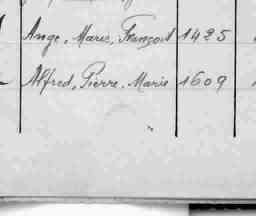 Ange, Marie, François 1425
Alfred, Pierre, Marie 1609